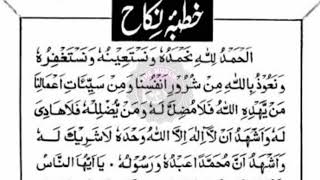 خطبۂ نکاح
اَلْحَمْدُ لِلّٰهِ نَحْمَدُهٗ وَنَسْتَعِيْنُهٗ وَنَسْتَغْفِرُهٗ
وَنَعُوْذُ بِاللّٰهِ مِنْ شُرُوْرِ اَنْفُسِنَا وَمِنْ سَيِّئَاتِ اَعْمَالِنَا
مَنْ يَّهْدِهِ اللّٰهُ فَلَا مُضِلَّ لَهٗ وَمَنْ يُّضْلِلْهُ فَلَاهَادِىَ
لَهٗ وَاَشْهَدُ اَنْ لَّآ اِلٰهَ اِلَّا اللّٰهُ وَحْدَهٗ لَاشَرِيْكَ لَهٗ
وَاَشْهَدُ اَنَّ مُحَمَّدًا عَبْدُهٗ وَرَسُوْلُهٗ ، يٰٓاَيُّهَا النَّاسُ